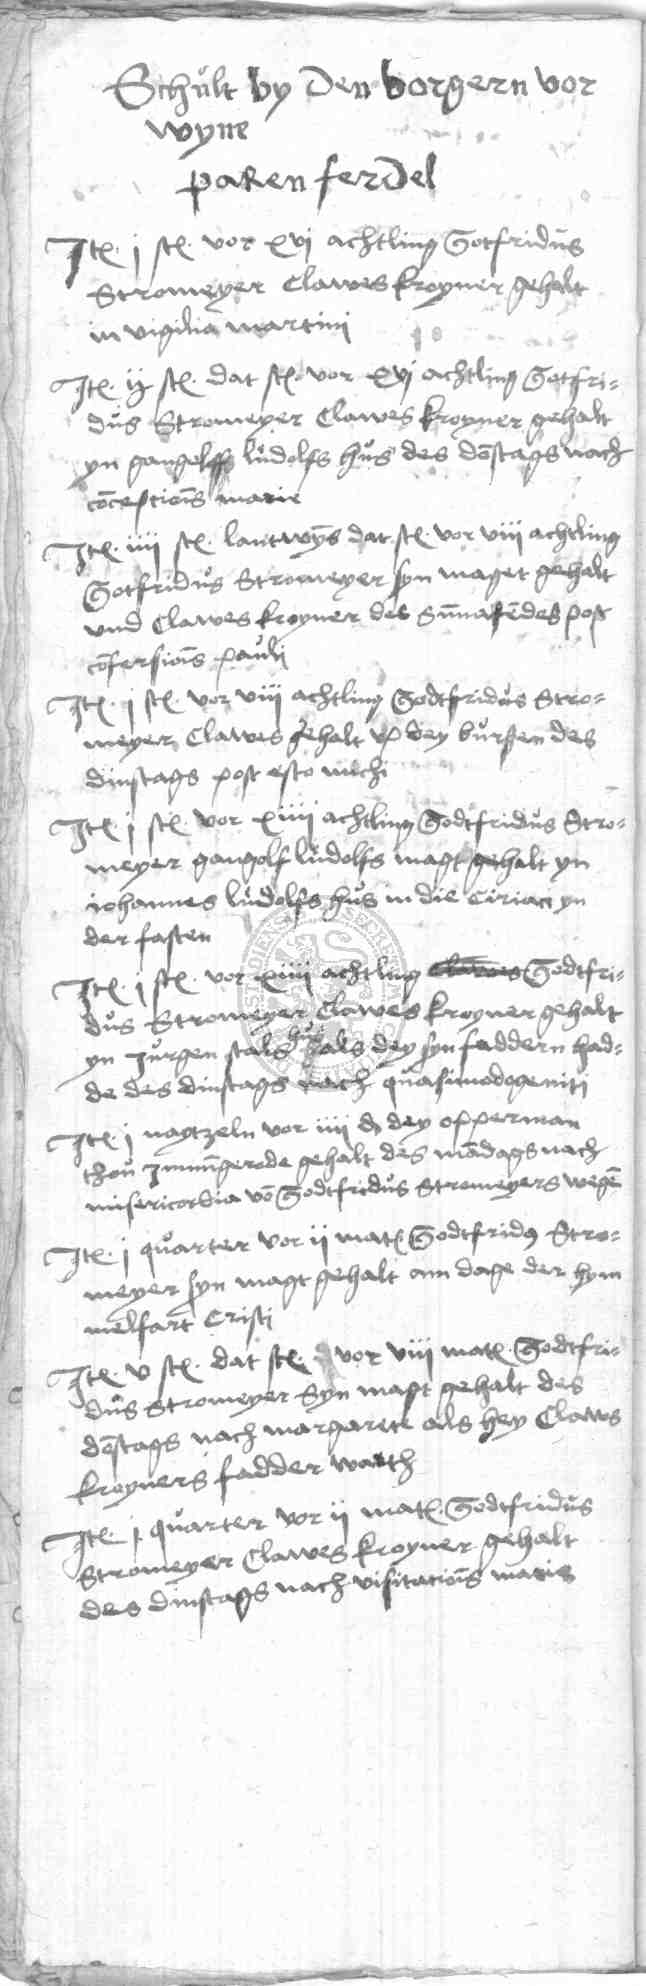 Schult by den borgern vor
wyne
paken ferdel
Itē. j stē. vor xvj achtling Gotfridus
Stromeyer Clawes kroyner gehalt
in vigilia martini
Itē. ij stē. dat stē. vor xvj achtling Gotfri=
dus Stromeyer Clawes kroyner gehalt
yn gangelff ludolfs hus des dōstags nach
cōcepcioīs marie
Itē. iiij stē. lantwyns dat stē. vor viij achtling
Gotfridus Stromeyer syn maget gehalt
vnd Clawes kroyner des Sūnafēdes post
cōfersioīs pauli
Itē. j stē. vor viij achtling Godtfridus Stro=
meyer Clawes gehalt vp dey bursen des
dinstags post esto michi
Itē j stē. vor xiiij achtling Godtfridus Stro=
meyer gangolf ludolfs magt gehalt yn
iohannes ludolfs hus in die Ciriaci yn
der fasten
Itē. j stē. vor xiiij achtling Clawes Godtfri=
dus Stromeyer Clawes kroyner gehalt
yn Jurgen stals hus als dey syn faddern had=
de des dinstags nach quasimodogeniti
Itē. j vor iiij d dey opperman
thou Immīgerode gehalt des mādags nach
misericordia vō Godtfridus Stromeyers wegē
Itē. j quarter vor ij matē Godtfridus Stro=
meyer syn magt gehalt am dage der hym
melfart Cristi
Itē. v stē. dat stē. vor viij matē. Godtfri=
dus Stromeyer Syn magt gehalt des
dōstags nach margarete als hey Claws
kroyners fadder warth
Itē. j quarter vor ij matē. Godtfridus
Stromeyer Clawes kroyner gehalt
des dinstags nach visitacioīs marie